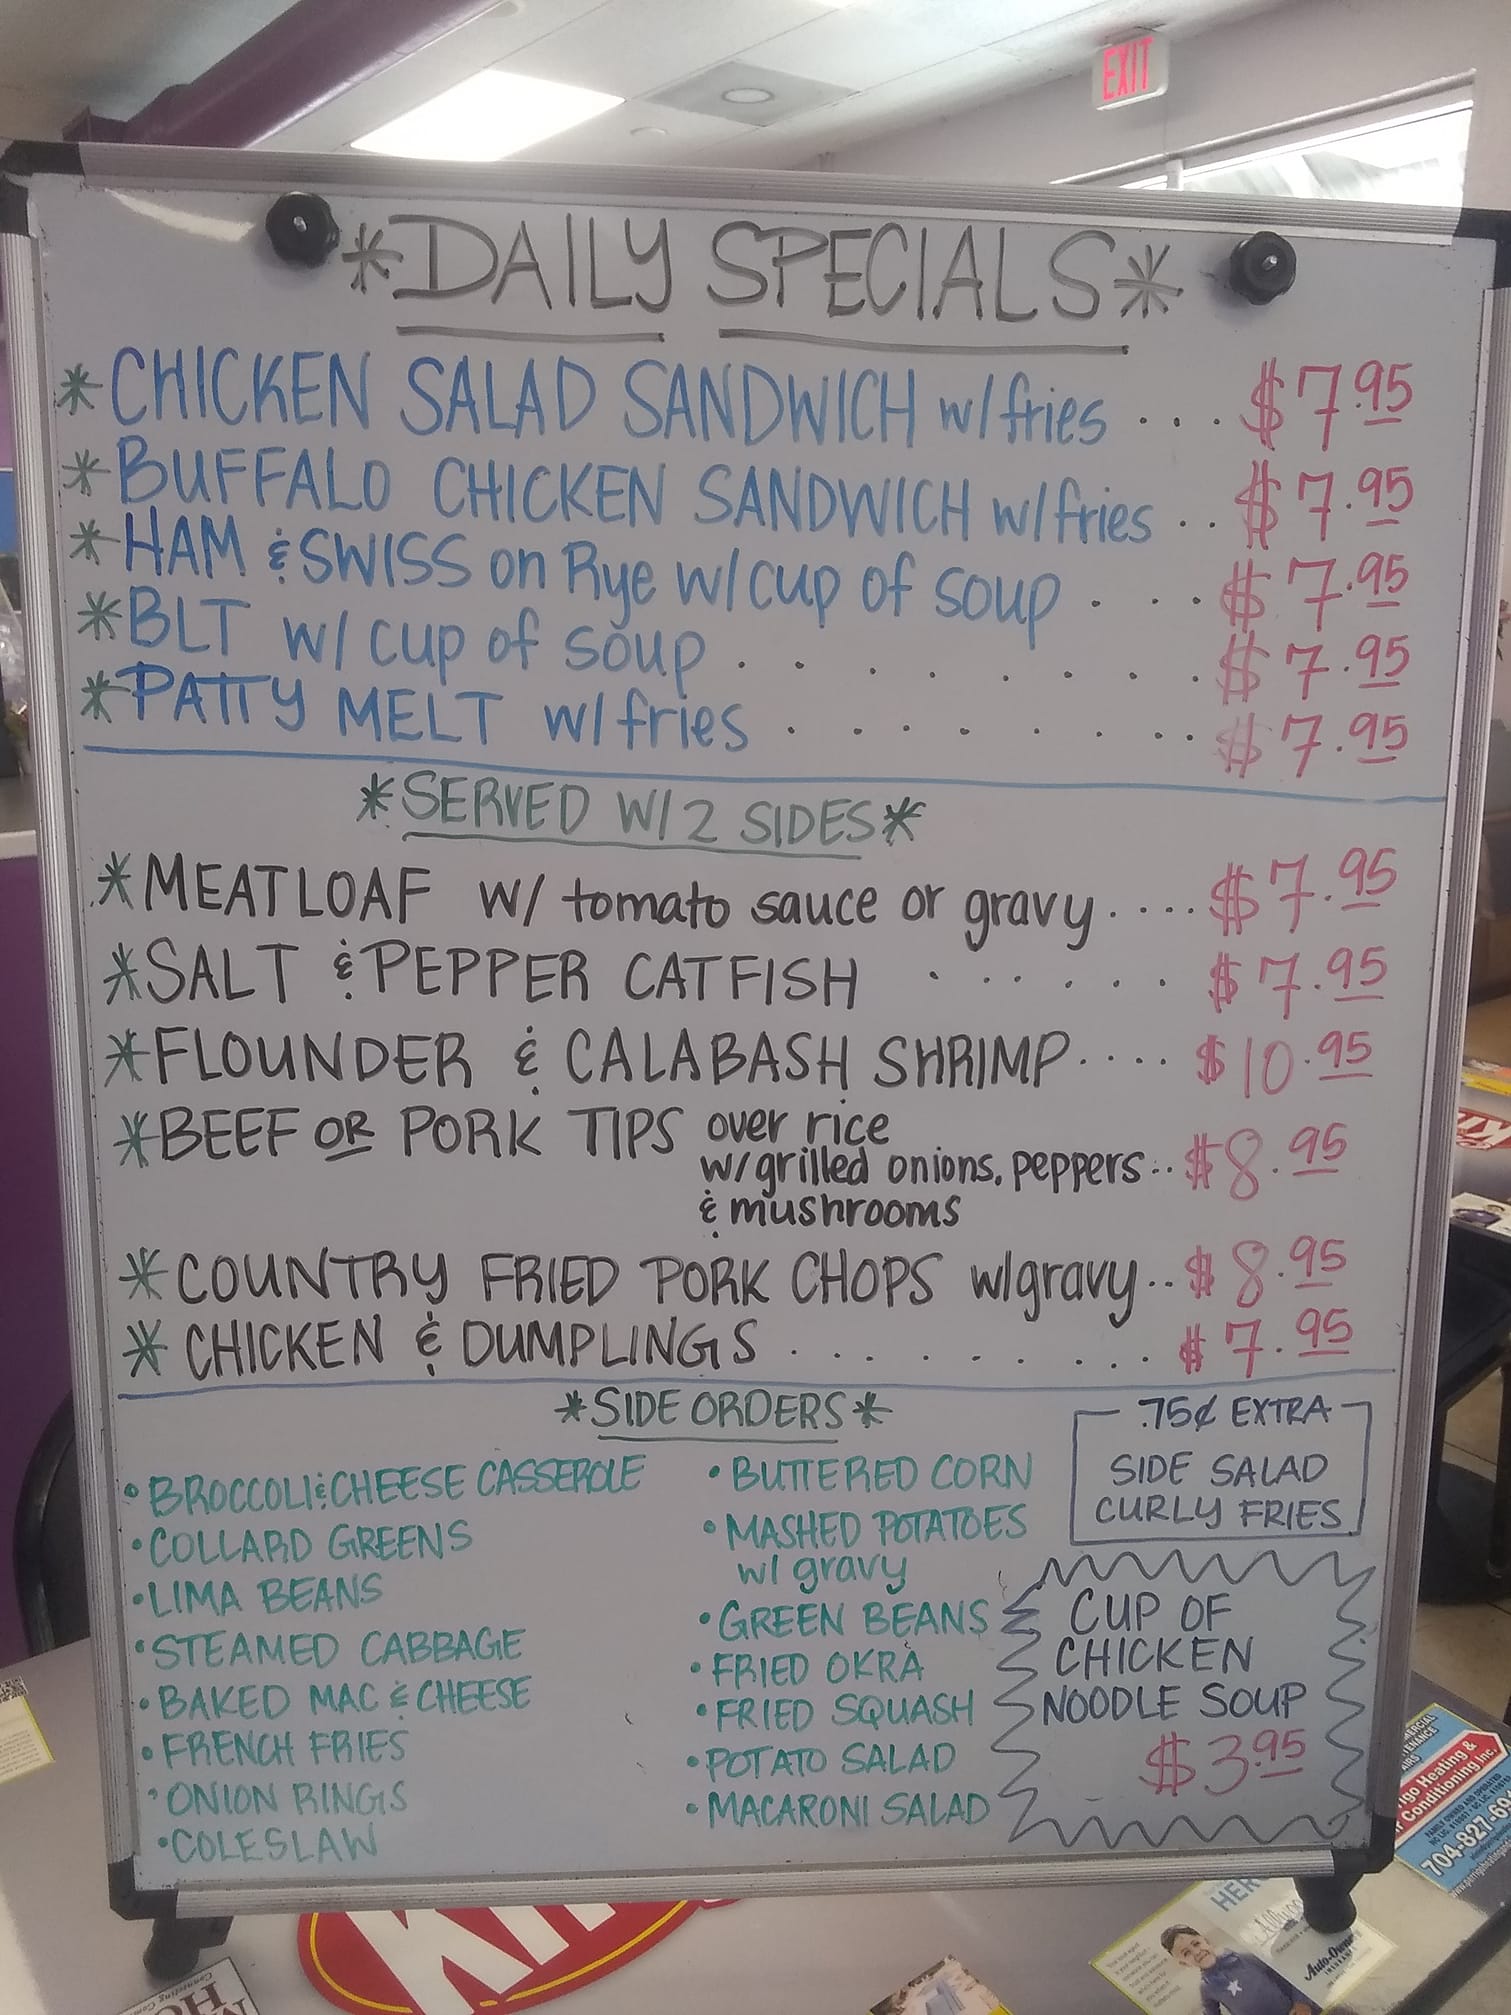 EXIT
*DAILY SPECIALS*
*CHICKEN SALAD SANDWICH w/fries .... $7.95
*BUFFALO CHICKEN SANDWICH w/fries .. $7.95
*HAM & SWISS on Rye w/cup of soup .... $7.95
*BLT w/ cup of soup ........ $7.95
*PATTY MELT w/fries ......... $7.95
*SERVED W/ 2 SIDES*
*MEATLOAF w/ tomato sauce or gravy .... $7.95
*SALT & PEPPER CATFISH ...... $7.95
*FLOUNDER & CALABASH SHRIMP .... $10.95
*BEEF OR PORK TIPS over rice
w/grilled onions, peppers .. $8.95
& mushrooms
*COUNTRY FRIED PORK CHOPS w/gravy .. $8.95
*CHICKEN & DUMPLINGS ......... $7.95
*SIDE ORDERS*
•BROCCOLI & CHEESE CASSEROLE
•COLLARD GREENS
•LIMA BEANS
•STEAMED CABBAGE
•BAKED MAC & CHEESE
•FRENCH FRIES
•ONION RINGS
•COLESLAW
•BUTTERED CORN
•MASHED POTATOES
w/ gravy
•GREEN BEANS
•FRIED OKRA
•FRIED SQUASH
•POTATO SALAD
•MACARONI SALAD
.75¢ EXTRA
SIDE SALAD
CURLY FRIES
CUP OF
CHICKEN
NOODLE SOUP
$3.95
Heating &
Conditioning Inc.
704-827-69
HER
Auto-Owners
INSURANCE